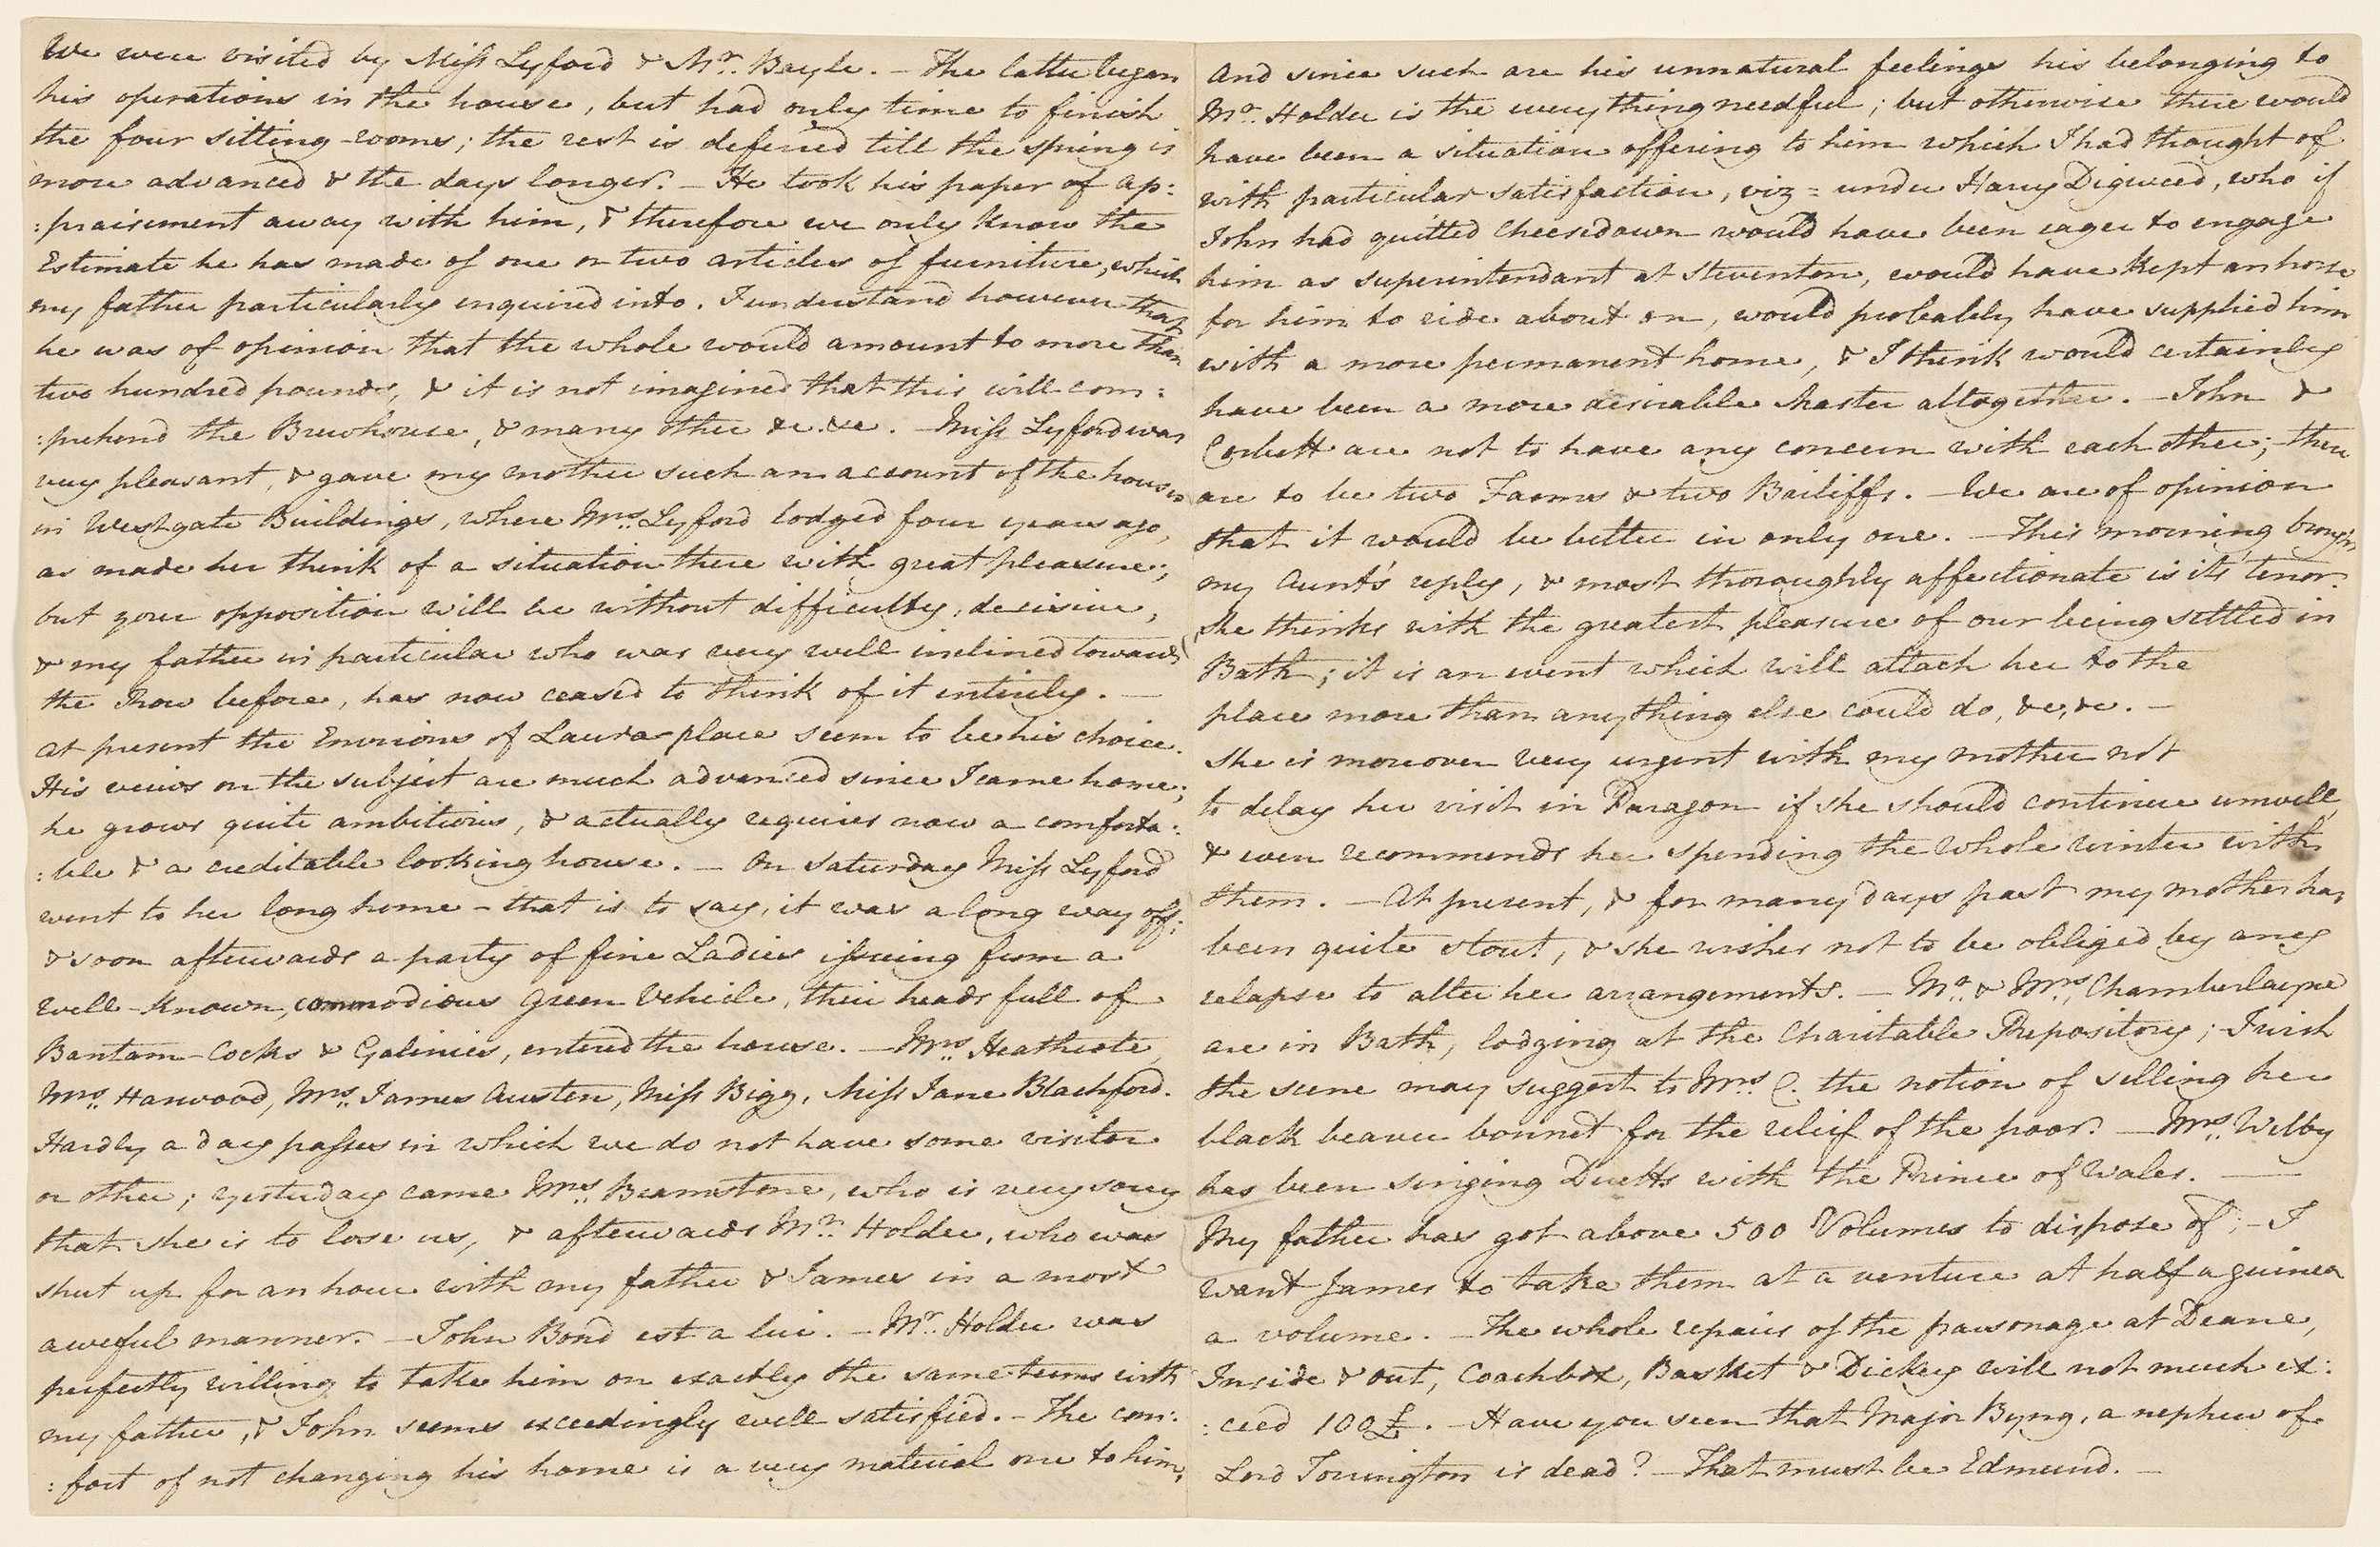 We were visited by Miss Lyford & Mr. Bayle. – The latter began
his operations in the house, but had only time to finish
the four sitting-rooms; the rest is deferred till the spring is
more advanced & the days longer. – He took his paper of ap:
:praisement away with him, & therefore we only know the
Estimate he has made of one or two articles of furniture, which
my father particularly enquired into. I understand however that
he was of opinion that the whole would amount to more than
two hundred pounds, & it is not imagined that this will com:
:prehend the Brewhouse, & many other &c. &c. – Miss Lyford was
very pleasant, & gave my mother such an account of the houses
in Westgate Buildings, where Mrs. Lyford lodged four years ago,
as made her think of a situation there with great pleasure;
but your opposition will be without difficulty, decisive,
& my father in particular who was very well inclined towards
the Row before, has now ceased to think of it entirely. –
At present the Environs of Laura-place seem to be his choice.
His veiws on the subject are much advanced since I came home;
he grows quite ambitious, & actually requires now a comforta:
:ble & a creditable looking house. – On Saturday Miss Lyford
went to her long home – that is to say, it was a long way off;
& soon afterwards a party of fine Ladies issuing from a
well-known, commodious green Vehicle, their heads full of
Bantam-Cocks & Galinies, entered the house. – Mrs. Heathcote,
Mrs. Harwood, Mrs. James Austen, Miss Bigg, Miss Jane Blachford.
Hardly a day passes in which we do not have some visitor
or other; yesterday came Mrs. Bramstone, who is very sorry
that she is to lose us, & afterwards Mr. Holder, who was
shut up for an hour with my father & James in a most
aweful manner. – John Bond est a lui. – Mr. Holder was
perfectly willing to take him on exactly the same terms with
my father, & John seems exceedingly well satisfied. – The com:
:fort of not changing his home is a very material one to him,
And since such are his unnatural feelings his belonging to
Mr. Holder is the every thing needful; but otherwise there would
have been a situation offering to him which I had thought of
with particular satisfaction, viz = under Harry Digweed, who if
John had quitted Cheesedown would have been eager to engage
him as superintendant at Steventon, would have kept an horse
for him to ride about on, would probably have supplied him
with a more permanent home, & I think would certainly
have been a more desirable Master altogether. – John &
Corbett are not to have any concern with each other; there
are to be two Farms & two Bailiffs. – We are of opinion
that it would be better in only one. – This morning brought
my Aunt's reply, & most thoroughly affectionate is it's tenor.
She thinks with the greatest pleasure of our being settled in
Bath; it is an event which will attach her to the
place more than anything else could do, &c, &c. –
She is moreover very urgent with my mother not
to delay her visit in Paragon if she should continue unwell,
& even recommends her spending the whole winter with
them. – At present, & for many days past my mother has
been quite stout, & she wishes not to be obliged by any
relapse to alter her arrangements. – Mr. & Mrs. Chamberlayne
are in Bath, lodging at the Charitable Repository; I wish
the scene may suggest to Mrs. C. the notion of selling her
black beaver bonnet for the relief of the poor. – Mrs. Welby
has been singing Duetts with the Prince of Wales. –
My father has got above 500 Volumes to dispose of; – I
want James to take them at a venture at half a guinea
a volume. – The whole repairs of the parsonage at Deane,
Inside & out, Coachbox, Basket & Dickey will not much ex:
:ceed 100£. – Have you seen that Major Byng, a nephew of
Lord Torrington is dead? – That must be Edmund. –